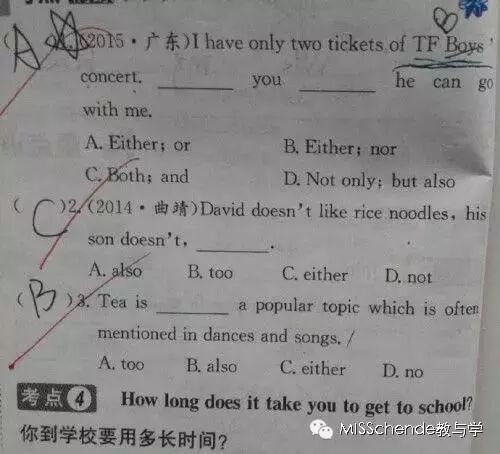 (A) 1.(2015·广东)I have only two tickets of TF Boys'
concert. ______ you ______ he can go
with me.
A. Either; or B. Either; nor
C. Both; and D. Not only; but also
(C)2.(2014·曲靖)David doesn't like rice noodles, his
son doesn't, ______.
A. also B. too C. either D. not
(B)3. Tea is ______ a popular topic which is often
mentioned in dances and songs. /
A. too B. also C. either D. no
考点4 How long does it take you to get to school?
你到学校要用多长时间?
MISSchende教与学